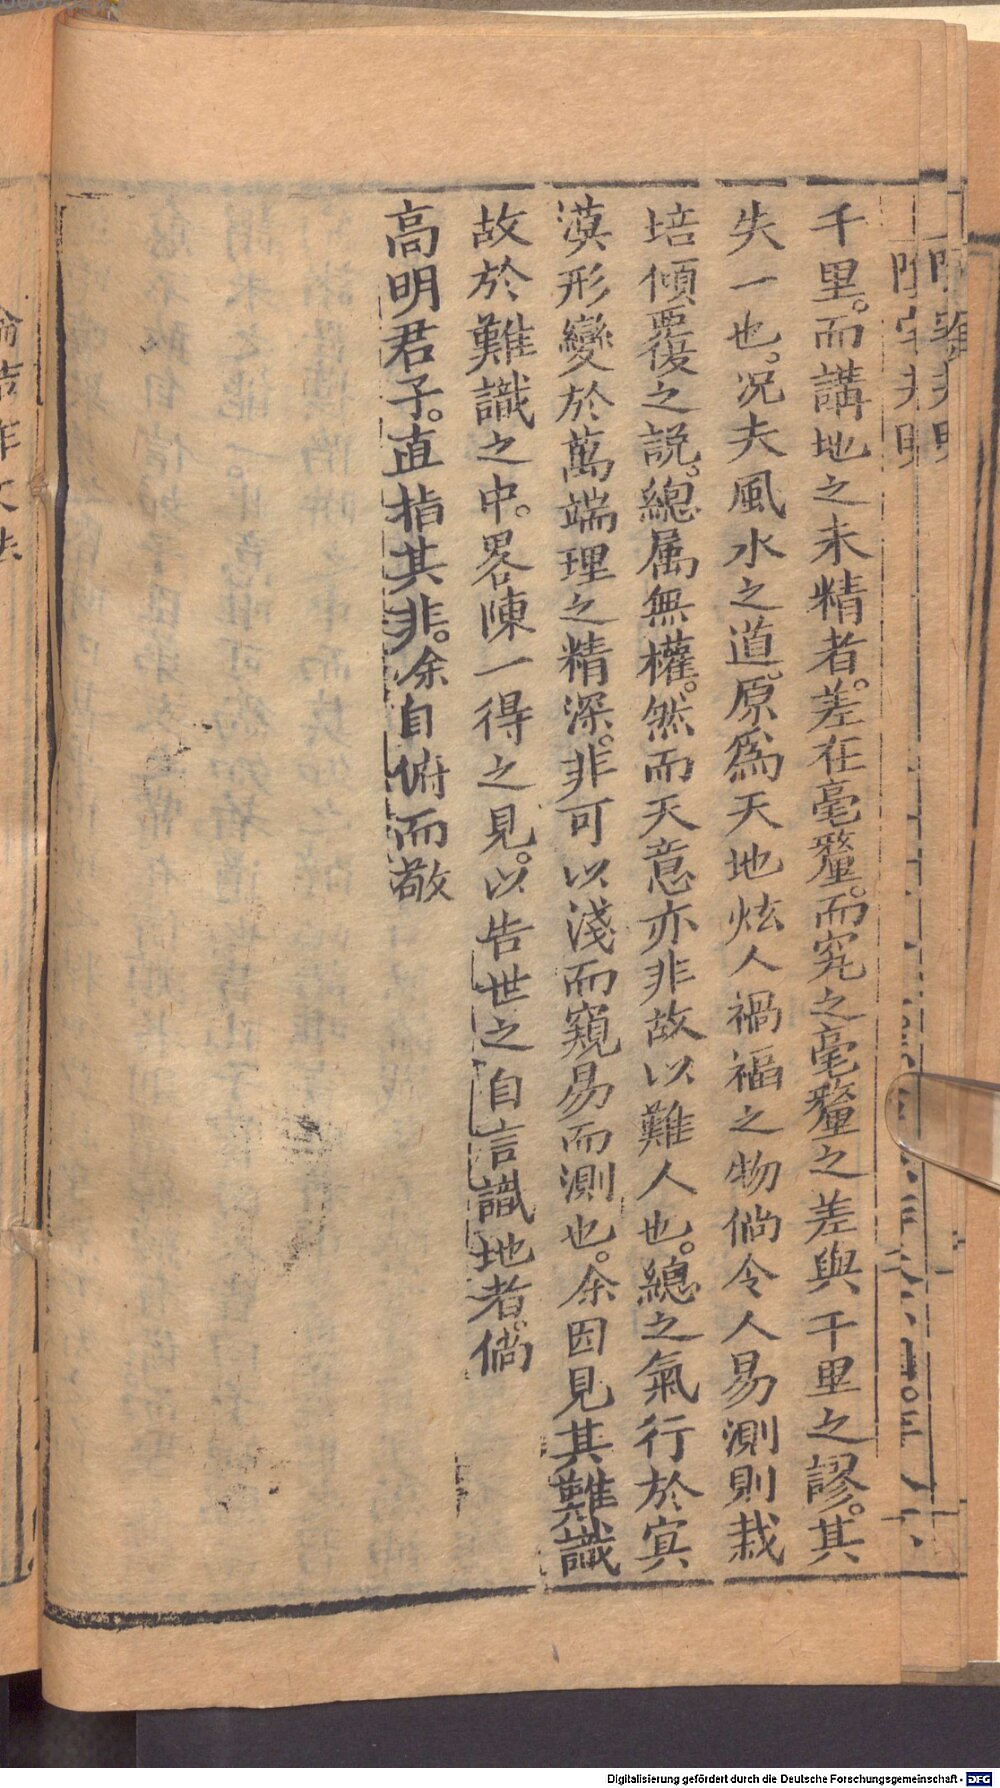 千里。而講地之未精者。差在毫釐。而究之毫釐之差與千里之謬。其
失一也。况夫風水之道。原爲天地炫人禍福之物倘令人易測則栽
培傾覆之説。總属無權。然而天意亦非故以難人也。總之氣行於㝠
漠形變於萬端理之精深。非可以淺而窺易而測也。余因見其難識
故於難識之中。畧陳一得之見。以告世之自言識地者。倘
高明君子。直指其非。余自俯而敬
Digitalisierung gefördert durch die Deutsche Forschungsgemeinschaft - DFG